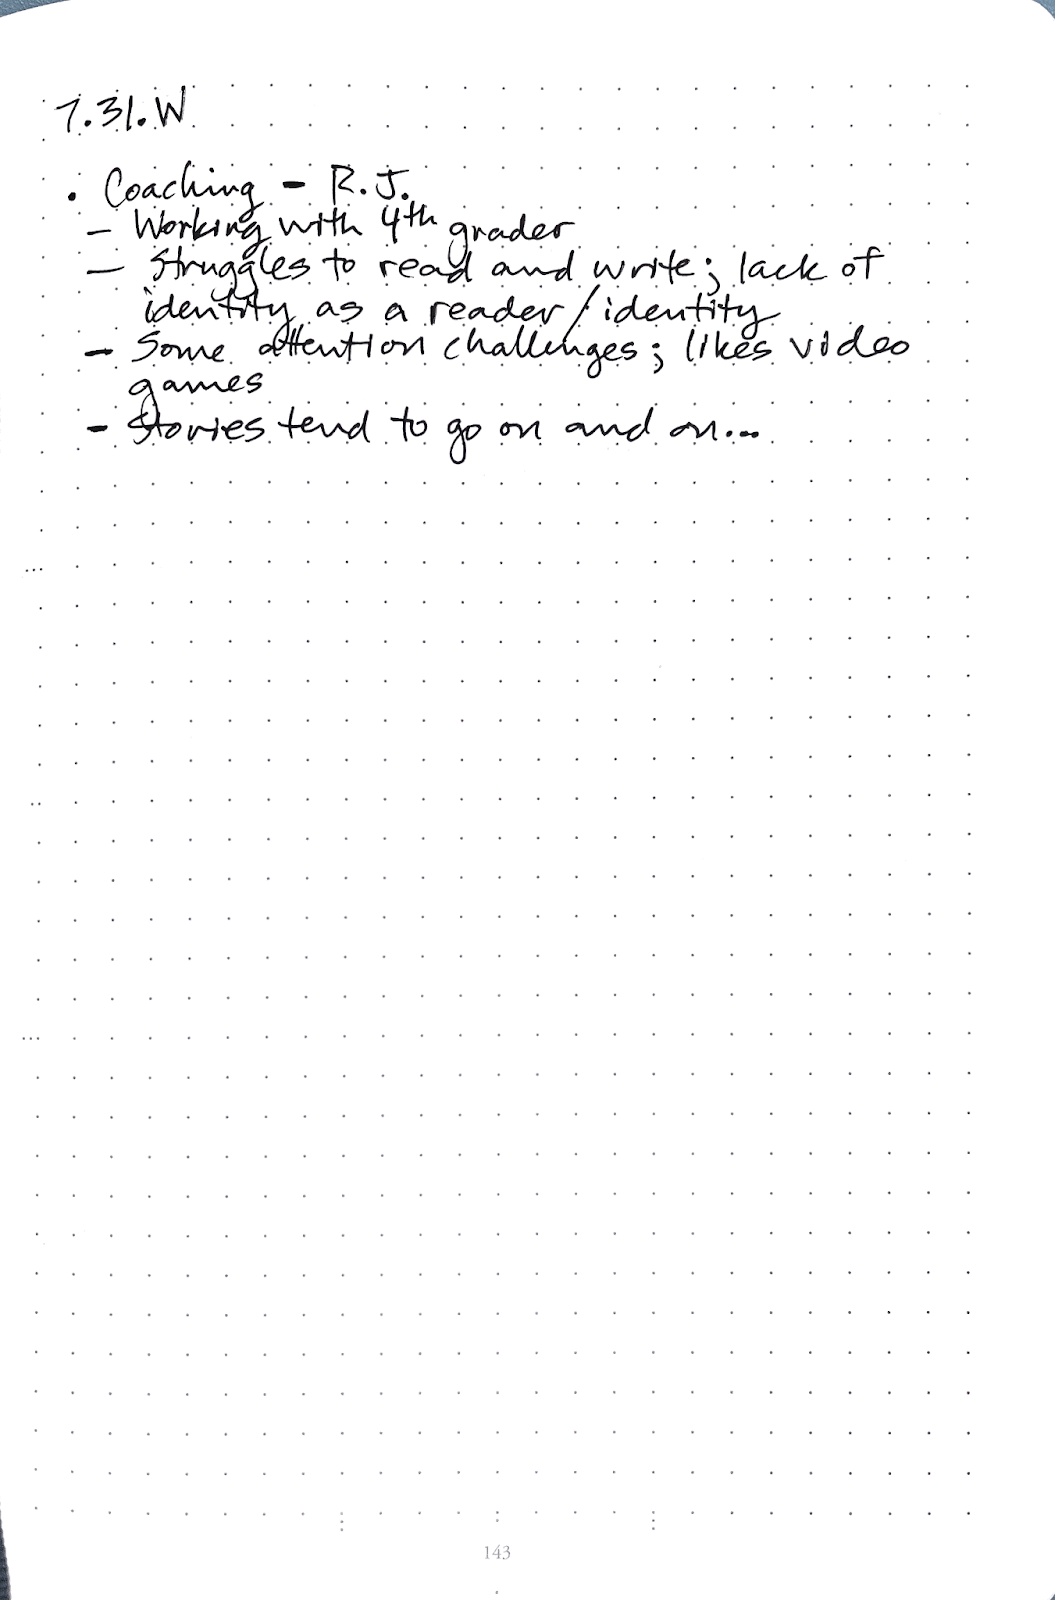 7.31.W
• Coaching - R.J.
- Working with 4th grader
- Struggles to read and write; lack of
identity as a reader/identity
- Some attention challenges; likes video
games
- Stories tend to go on and on...
143